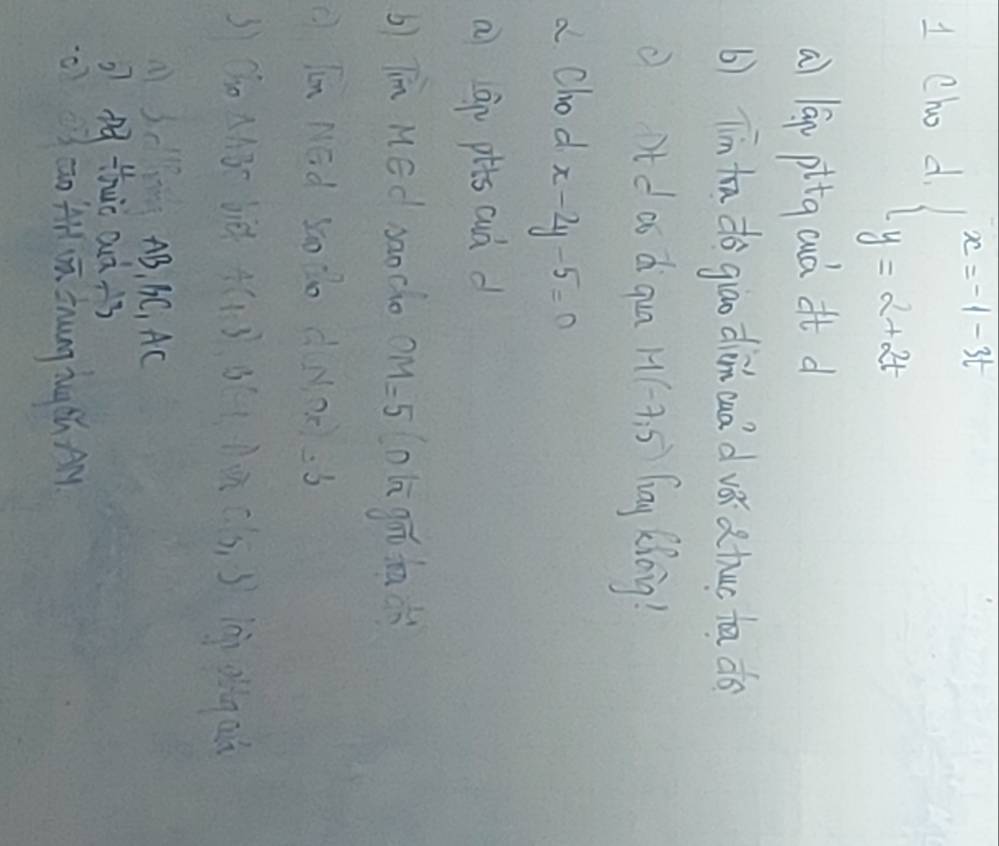 1 Cho d. { x = -1 - 3t
y = 2 + 2t
a) lập pttq của đt d
b) Tìm tọa độ giao điểm của d với 2 trục tọa độ
c) Đt d có đi qua M(-7;5) hay không?
2 Cho d x - 2y - 5 = 0
a) lập pts của d
b) Tìm M ∈ d sao cho OM = 5 (O là gốc tọa độ)
c) Tìm N ∈ d sao cho d(N, Ox) = 3
3) Cho ΔABC biết A(1,3), B(-1, 1) và C(5, 3) lập pttq của
a) 3 AB, BC, AC
b) trực của AB
c) cao AH và trung tuyến AM.